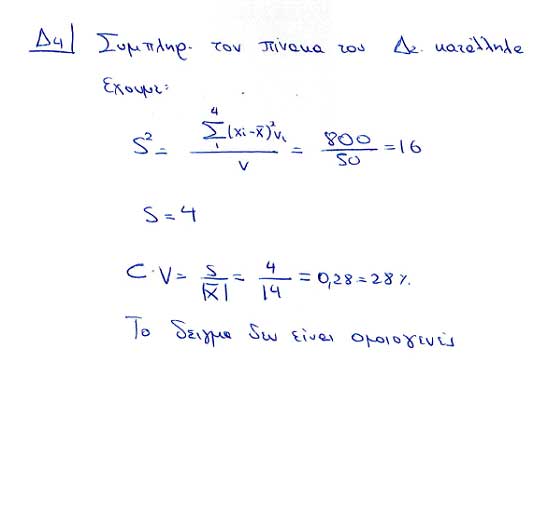 Δ4| Συμπληρ. τον πίνακα του Δ2. κατάλληλα
έχουμε:
S² = Σ₁⁴(xi-x̄)²νi / ν = 800/50 = 16
S = 4
C.V = S/|x̄| = 4/14 = 0,28 = 28%.
Το δειγμα δεν είναι ομοιογενές